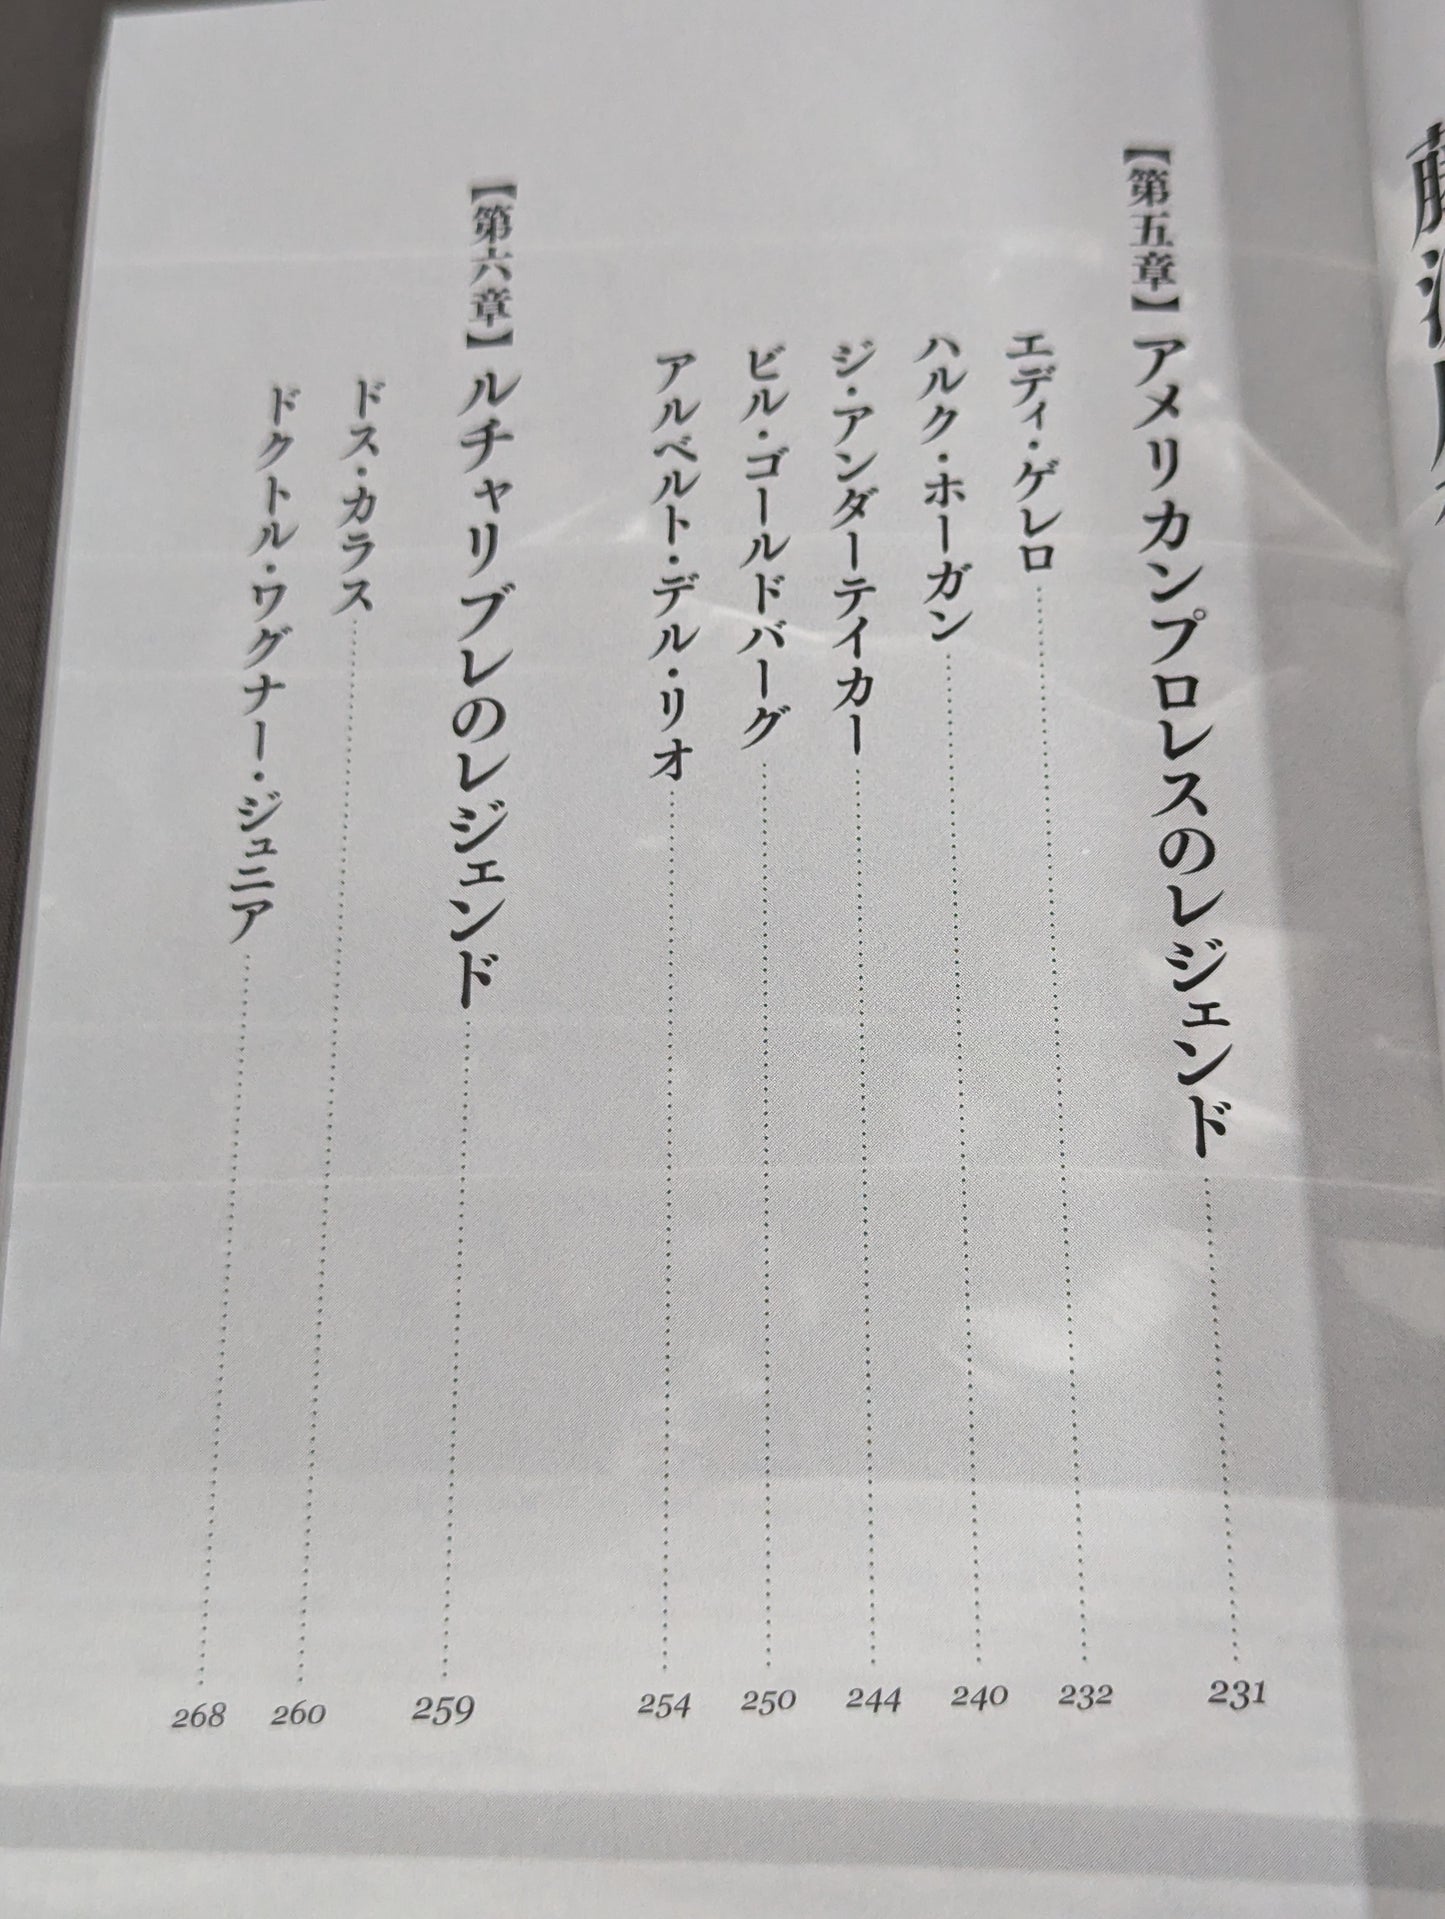 【第五章】アメリカンプロレスのレジェンド……231
エディ・ゲレロ……232
ハルク・ホーガン……240
ジ・アンダーテイカー……244
ビル・ゴールドバーグ……250
アルベルト・デル・リオ……254
【第六章】ルチャリブレのレジェンド……259
ドス・カラス……260
ドクトル・ワグナー・ジュニア……268